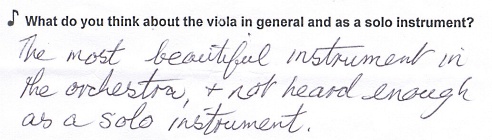 What do you think about the viola in general and as a solo instrument?
The most beautiful instrument in
the orchestra, + not heard enough
as a solo instrument.